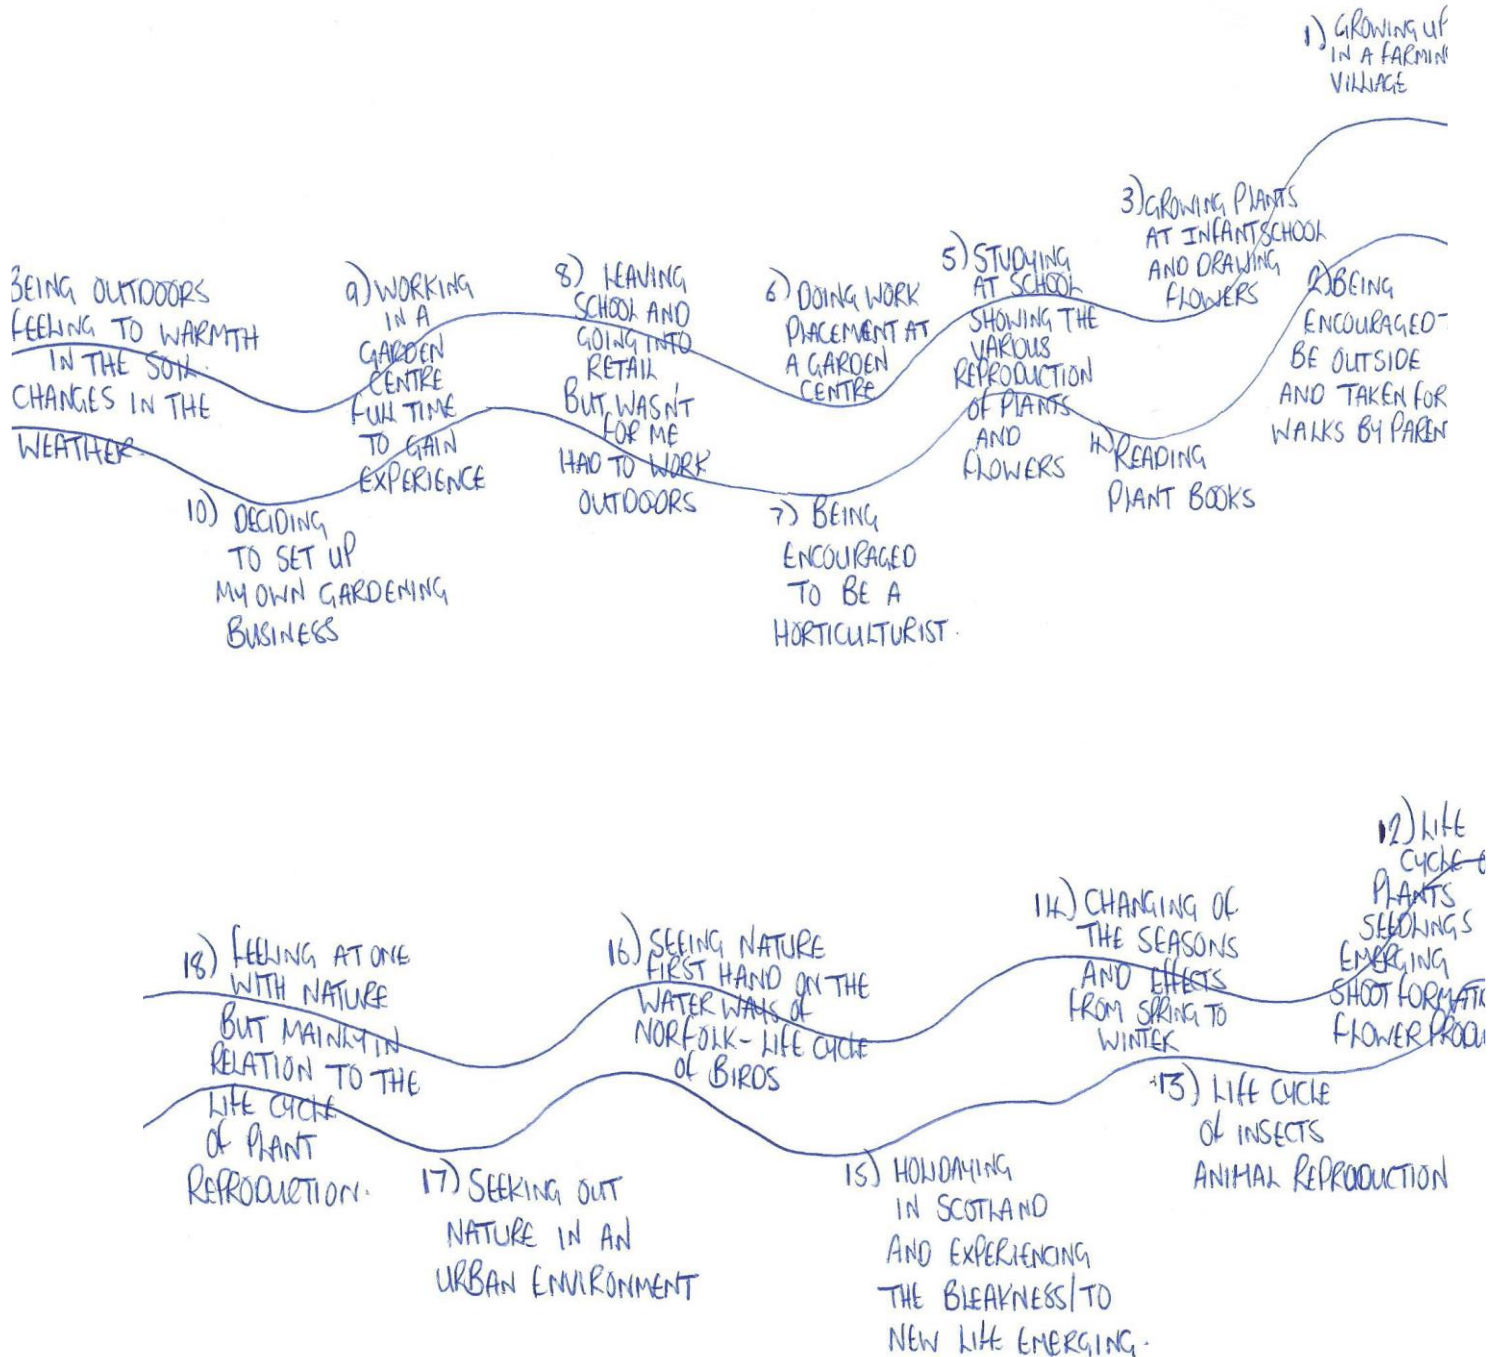 1) GROWING UP
IN A FARMIN
VILLIAGE
2) BEING
ENCOURAGED
BE OUTSIDE
AND TAKEN FOR
WALKS BY PAREN
3) GROWING PLANTS
AT INFANT SCHOOL
AND DRAWING
FLOWERS
4) READING
PLANT BOOKS
5) STUDYING
AT SCHOOL
SHOWING THE
VAROUS
REPRODUCTION
OF PLANTS
AND
FLOWERS
6) DOING WORK
PLACEMENT AT
A GARDEN
CENTRE
7) BEING
ENCOURAGED
TO BE A
HORTICULTURIST.
8) LEAVING
SCHOOL AND
GOING INTO
RETAIL
BUT WASN'T
FOR ME
HAD TO WORK
OUTDOORS
9) WORKING
IN A
GARDEN
CENTRE
FULL TIME
TO GAIN
EXPERIENCE
10) DECIDING
TO SET UP
MY OWN GARDENING
BUSINESS
BEING OUTDOORS
FEELING TO WARMTH
IN THE SOIL.
CHANGES IN THE
WEATHER.
12) LIFE
CYCLE O
PLANTS
SEEDLINGS
EMERGING
SHOOT FORMATIO
FLOWER PRODU
13) LIFE CYCLE
OF INSECTS
ANIMAL REPRODUCTION
14) CHANGING OF
THE SEASONS
AND EFFECTS
FROM SPRING TO
WINTER
15) HOLIDAYING
IN SCOTLAND
AND EXPERIENCING
THE BLEAKNESS/TO
NEW LIFE EMERGING.
16) SEEING NATURE
FIRST HAND ON THE
WATER WAYS OF
NORFOLK - LIFE CYCLE
OF BIRDS
17) SEEKING OUT
NATURE IN AN
URBAN ENVIRONMENT
18) FEELING AT ONE
WITH NATURE
BUT MAINLY IN
RELATION TO THE
LIFE CYCLE
OF PLANT
REPRODUCTION.